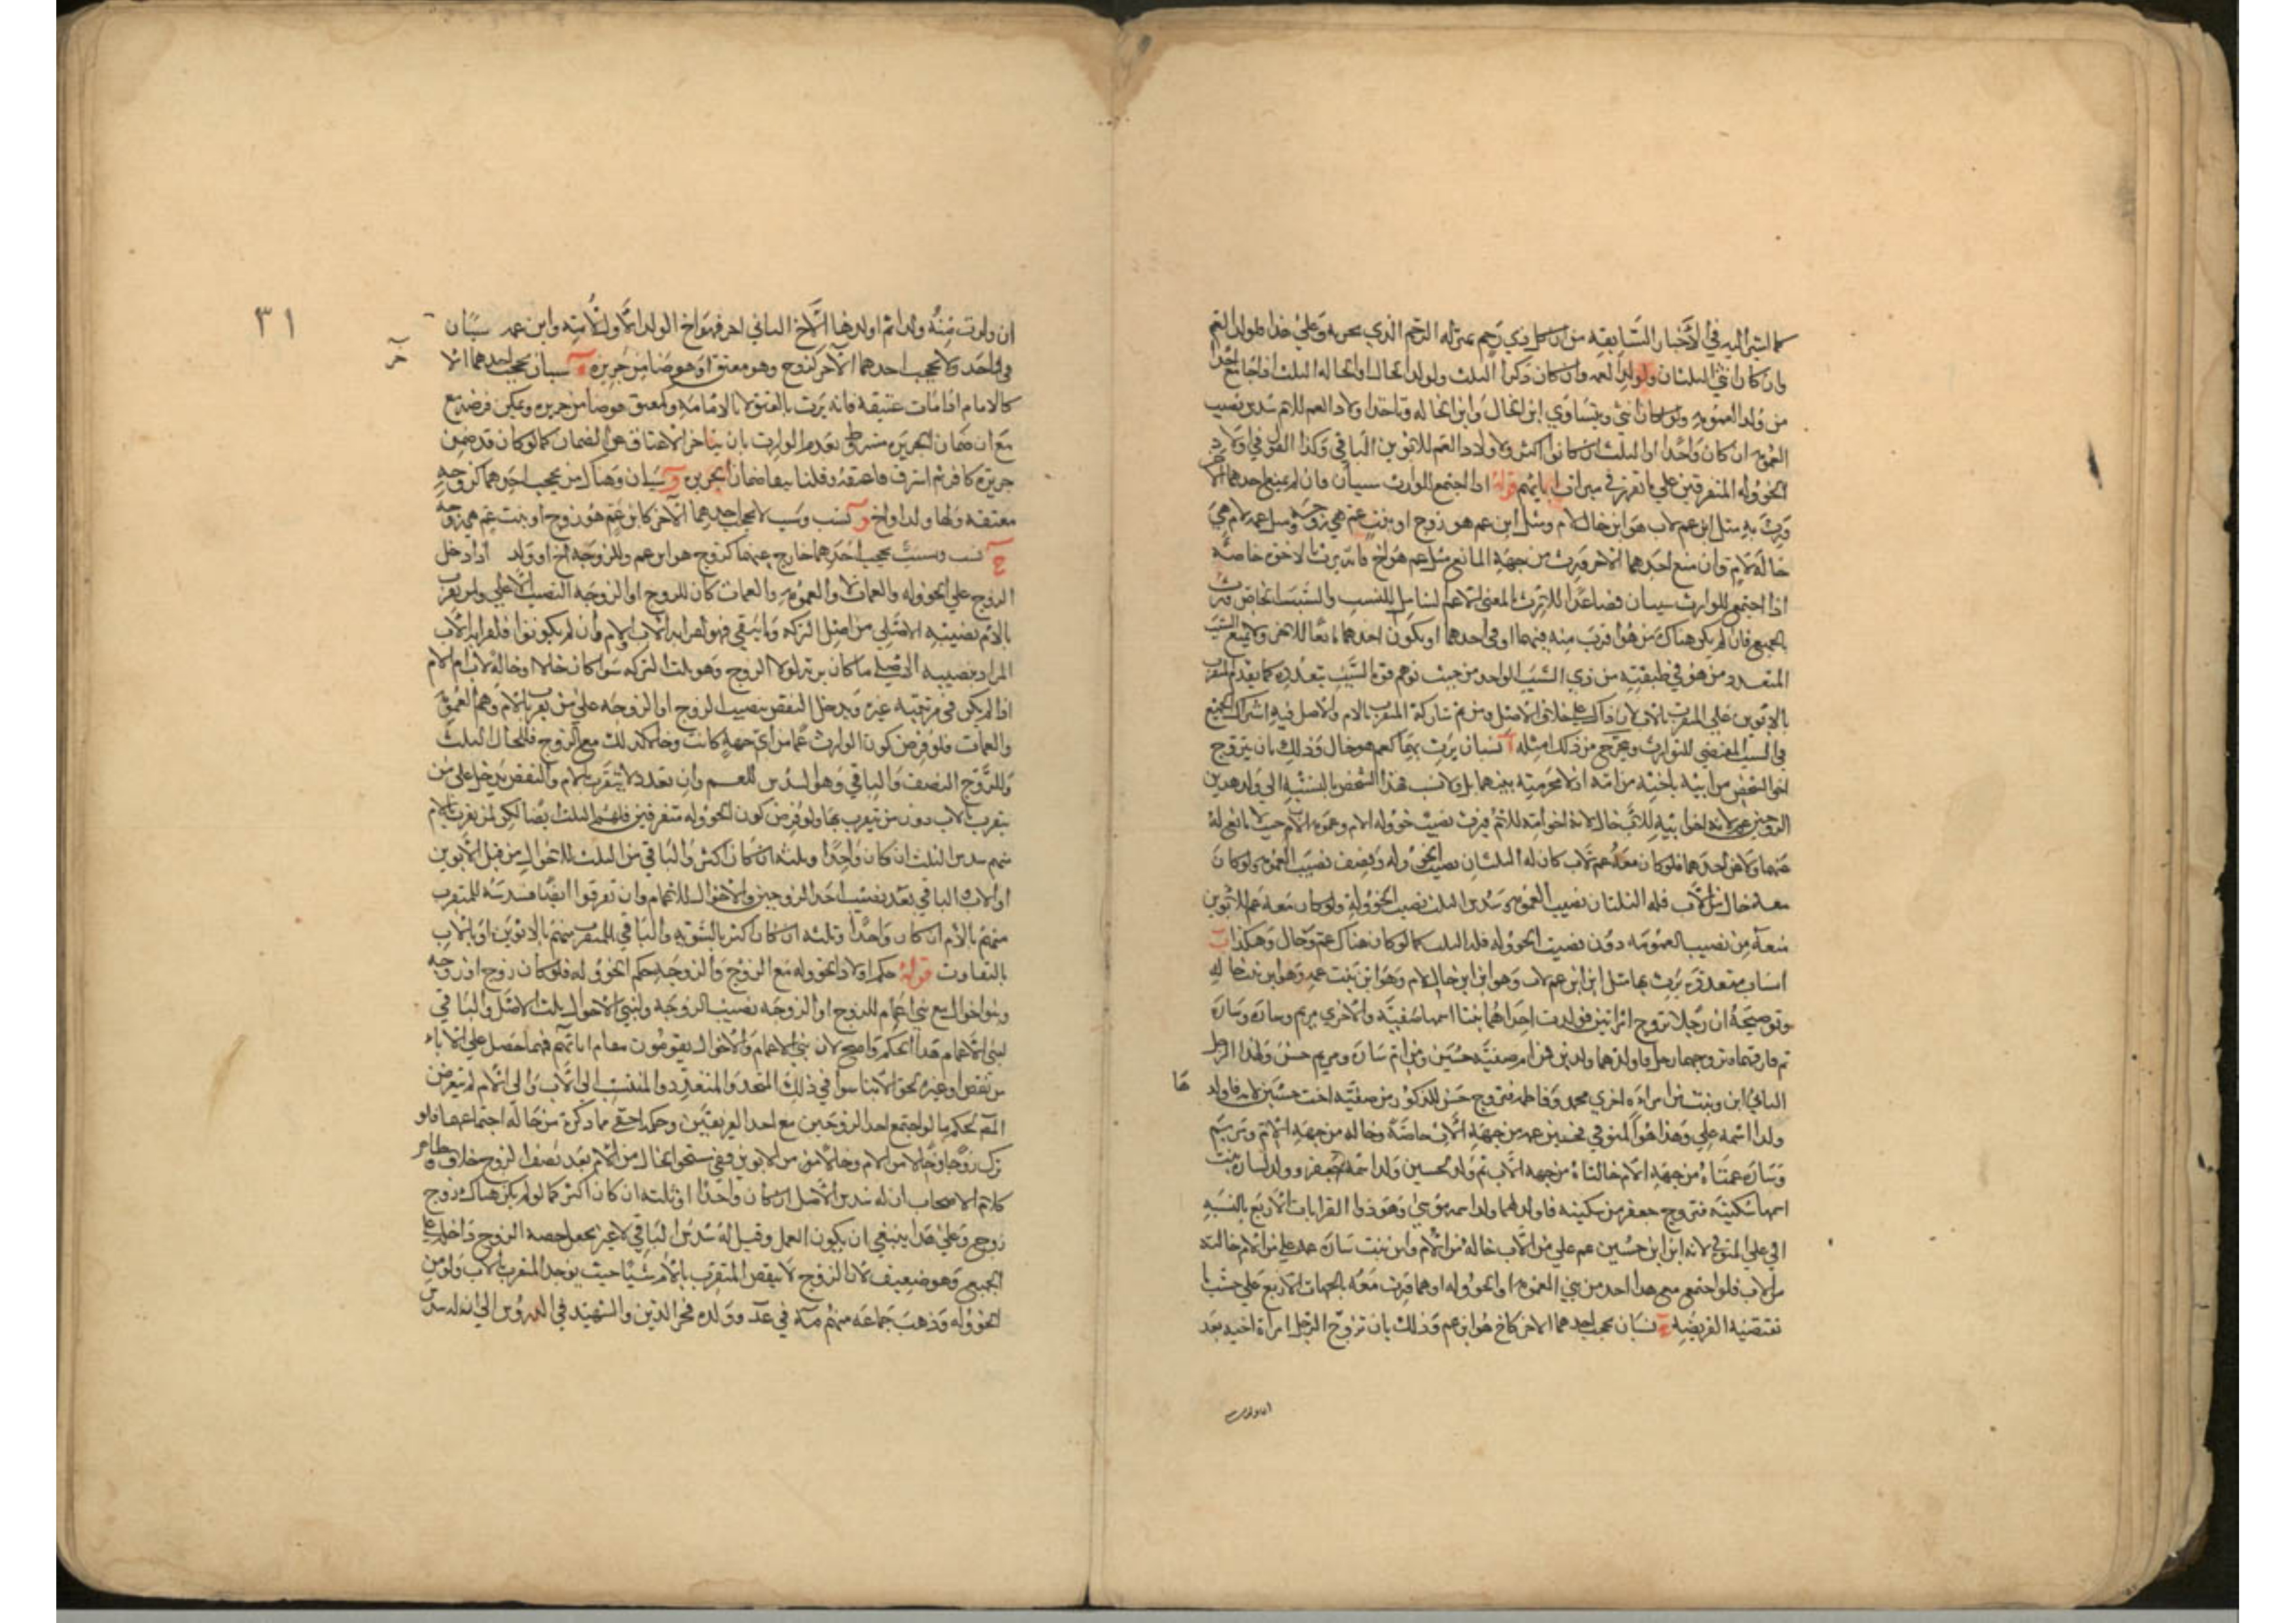 كما اشير اليه في الأخبار السابقه من ان كل ذي رحم بمنزله الرحم الذي يجر به وعلى هذا فلولد العم
وان كان انثى الثلثان ولولد العمه وان كان ذكرا الثلث ولولد الخال او الخاله الثلث اذا جامع احدا
من ولد العمومه ولو كان انثى ويتساوى ابن الخال وابن الخاله وياخذ اولاد العم للام سدس نصيب
العمومه ان كان واحدا او الثلث ان كانوا اكثر ولاولاد العم للابوين الباقي وكذا القول في اولاد
الخووله المتفرقين على ما تقرر في ميراث ابائهم قوله اذا اجتمع للوارث سببان فان لم يمنع احدهما الآخر
ورث به مثل ابن عم لاب هو ابن خال لام ومثل ابن عم هو زوج او بنت عم هي زوجه ومثل عمه لام هي
خالة لام وان منع احدهما الآخر فورث من جهة المانع مثل عم هو اخ فانه يرث بالاخوه خاصة
اذا اجتمع للوارث سببان فصاعدا للارث بالمعنى الاعم الشامل للنسب والسبب الخاص ورث
بالجميع فان لم يكن هناك من هو اقرب منه فيهما او في احدهما او يكون احدهما مانعا للاخر ولا يمنع السبب
المتعدد من هو في طبقته من ذي السبب الواحد من حيث توهم قوة السبب بتعدده كما يقدم المتقرب
بالابوين على المتقرب بالاب لان ذاك على خلاف الاصل ومن ثم شاركه المتقرب بالام والاصل فيه اشتراك الجميع
في السبب المقتضي للتوارث ويخرج من ذلك امثله آ نسبان يرث بهما كعم هو خال وذلك بان يتزوج
اخو الشخص من ابيه باخته من امه اذ لا محرميه بينهما بل ولا نسب فهذا الشخص بالنسبه الى ولد هذين
الزوجين عم لانه اخو ابيه للاب خال لانه اخو امه للام فيرث نصيب خووله الام وعمومه الاب حيث لا مانع له
عنهما ولا عن احدهما فلو كان معه عم لاب كان له الثلثان نصيب الخووله ونصف نصيب العمومه ولو كان
معه خال من الاب فله الثلثان نصيب العمومه وسدس الثلث نصيب الخووله ولو كان معه عم للابوين
منعه من نصيب العمومه دون نصيب الخووله فله الثلث كما لو كان هناك عم وخال وهكذا ب
انساب متعددة يرث بها مثل ابن ابن عم لاب وهو ابن ابن خال لام وهو ابن بنت عمه وهو ابن بنت خاله
وتوضيحه ان رجلا تزوج امراتين فولدت احداهما بنتا اسمها صفيه والاخرى مريم وساره
ثم فارقتاه وتزوجهما رجل فاولدهما ولدين فمن ام صفيه حسين ومن ام ساره ومريم حسن ولهذا الرجل
الثاني ابن وبنت من امراه اخرى محمد وفاطمه فتزوج حسن المذكور من صفيه اخت حسين لامه فاولدها
ولدا اسمه علي وهذا هو المتوفى فحسين عمه من جهة الاب خاصة وخاله من جهة الام ومريم
وساره عمتاه من جهة الام خالتاه من جهة الاب ثم ولد لحسين ولد اسمه جعفر وولد لساره بنت
اسمها سكينه فتزوج جعفر من سكينه فاولدهما ولد اسمه موسى وهو ذو القرابات الاربع بالنسبه
الى علي المتوفى لانه ابن ابن حسين عم علي من الاب خاله من الام وابن بنت ساره عمه علي من الام خالته
من الاب فلو اجتمع مع هذا احد من بني العمومه او الخووله او هما ورث معه بالجهات الاربع على حسب ما
تقتضيه الفريضه ج نسبان يحجب احدهما الاخر كاخ هو ابن عم وذلك بان تزوج الرجل امراة اخيه بعد
ان ولدت
٣١
ان ولدت منه ولدا ثم اولدها الاخ الثاني اخر فهو اخ الولد الاول لامه وابن عمه سببان
في واحد ولا يحجب احدهما الآخر كزوج وهو معتق او هو ضامن جريره سببان يحجب احدهما الا
خر
كالامام اذا مات عتيقه فانه يرث بالعتق لا بالامامه وكمعتق هو ضامن جريره ويمكن فرضه مع
مع ان ضمان الجريره مشروط بعدم الوارث بان يتاخر الاعتاق عن الضمان كما لو كان قد ضمن
جريرة كافر ثم استرق فاعتقه وقلنا ببقا ضمان الجريره و سببان وهناك من يحجب احدهما كزوجه
معتقه ولها ولد او اخ و نسب وسبب لا يحجب احدهما الآخر كابن عم هو زوج او بنت عم هي زوجه
ح نسب وسبب يحجب احدهما خارج عنهما كزوج هو ابن عم وللزوجه اخ او ولد اذا دخل
الزوج على الخووله والخالات والعمومه والعمات كان للزوج او الزوجه النصيب الاعلى ولمن تقرب
بالام نصيبه الاصلي من اصل التركه وما يبقى فهو لقرابه الاب والام وان لم يكونوا فلقرابه الاب
المراد بنصيبه الاصلي ما كان يرثه لولا الزوج وهو ثلث التركه سوا كان خالا او خاله لاب ام لام
اذا لم يكن في مرتبته غيره ويدخل النقص بنصيب الزوج او الزوجه على من يتقرب بالام وهم العمومه
والعمات فلو فرض كون الوارث عما من اي جهة كانت وخالا كذلك مع الزوج فللخال الثلث
وللزوج النصف والباقي وهو السدس للعم وان تعدد المتقرب بالام والنقص يدخل على من
يتقرب بالاب دون من يتقرب بها ولو فرض كون الخووله متفرقين فلهم الثلث ايضا لكن لمن تقرب بالام
منهم سدس الثلث ان كان واحدا وثلثه ان كان اكثر والباقي من الثلث للاخوال من قبل الابوين
او الاب والباقي بعد نصيب احد الزوجين والاخوال للاعمام وان تفرقوا ايضا فسدسه للمتقرب
منهم بالام ان كان واحدا وثلثه ان كان اكثر بالسويه والباقي للمتقرب منهم بالابوين او بالاب
بالتفاوت قوله حكم اولاد الخووله مع الزوج والزوجه حكم الخووله فلو كان زوج او زوجه
وبنو اخوال مع بني اعمام فللزوج او الزوجه نصيب الزوجيه ولبني الاخوال ثلث الاصل والباقي
لبني الاعمام هذا الحكم واضح لان بني الاعمام والاخوال يقومون مقام ابائهم فمهما حصل على الآباء
من نقص او غيره لحق الابناء سوا في ذلك المتحد والمتعدد والمنتسب الى الاب والى الام لم يتعرض
المص لحكم ما لو اجتمع احد الزوجين مع احد الفريقين وحكمه اخفى مما ذكره من حاله اجتماعهما فلو
ترك زوجا وخالا من الام وخالا من الابوين ففي مستحق الخال من الام بعد نصف الزوج خلاف وظاهر
كلام الاصحاب ان له سدس الاصل ان كان واحدا او ثلثه ان كان اكثر كما لو لم يكن هناك زوج
وعلى هذا ينبغي ان يكون العمل وقيل له سدس الباقي لا غير بجعل حصه الزوج داخله على
الجميع وهو ضعيف لان الزوج لا ينقص المتقرب بالام شيئا حيث يوجد المتقرب بالاب ولو من
الخووله وذهب جماعه منهم مه في عد وولده فخر الدين والشهيد في الدروس الى ان له سدس